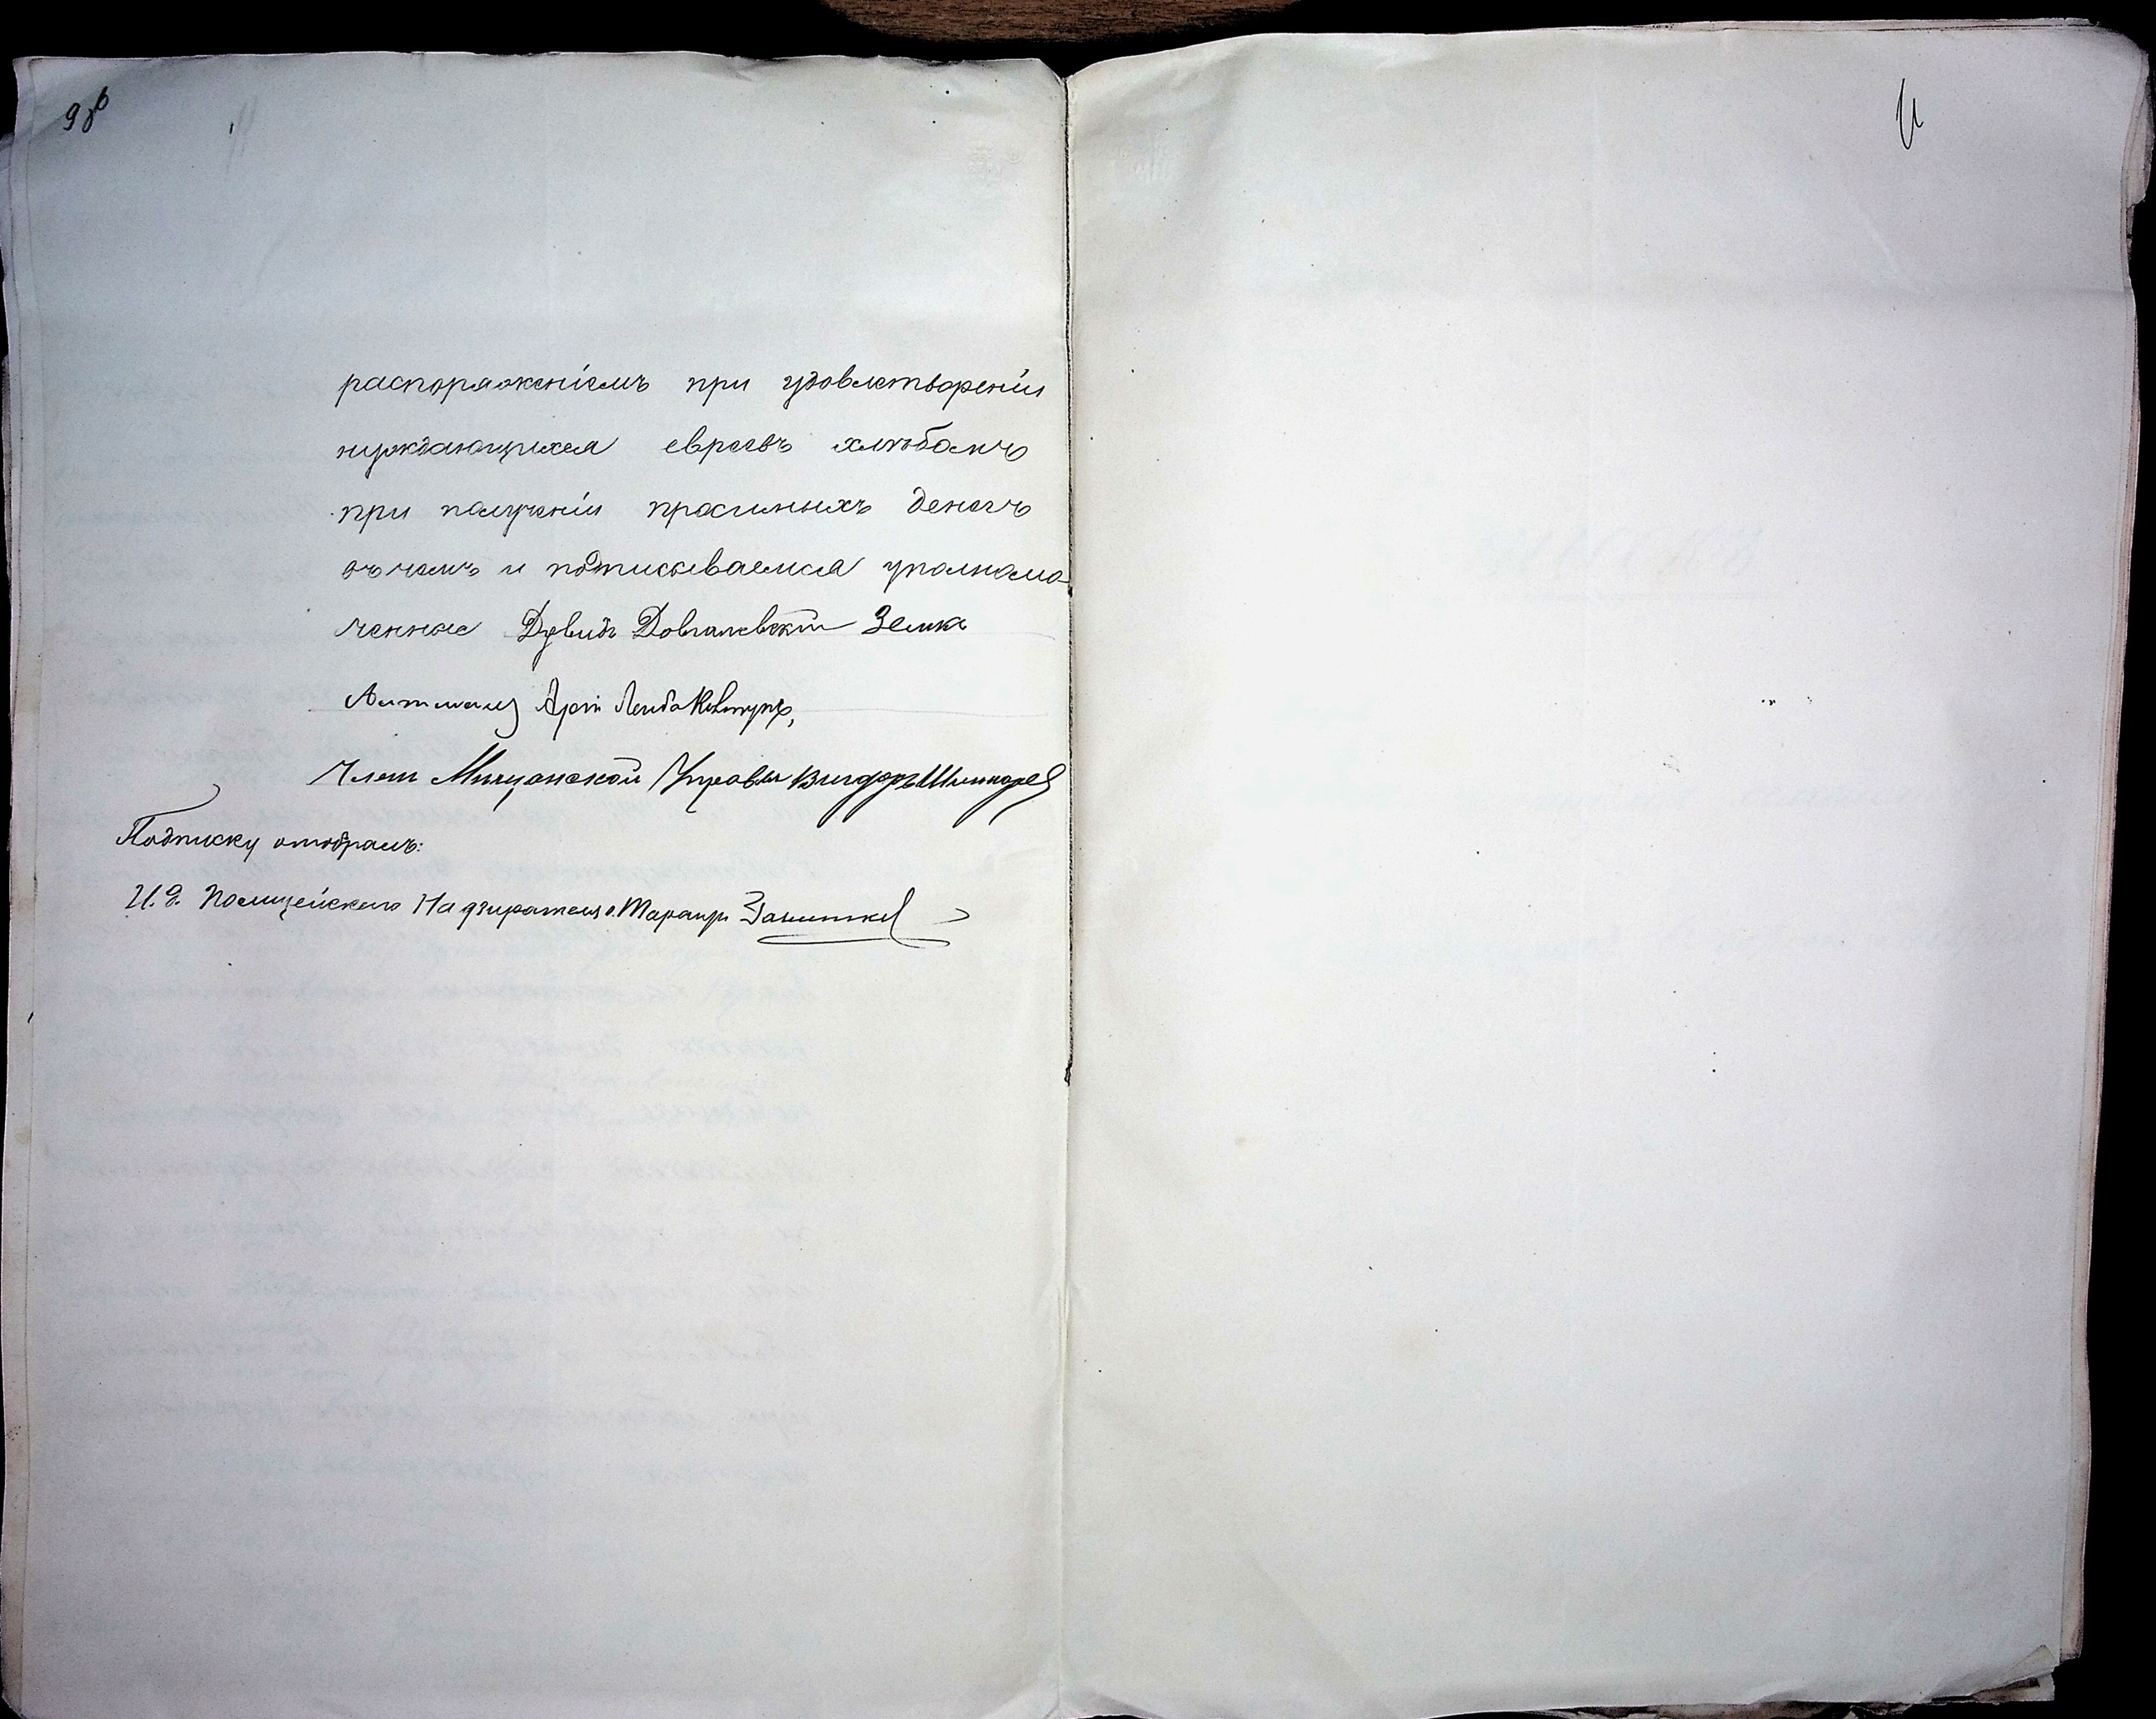 98
распоряженіемъ при удовлетвореніи
нуждающихся евреевъ хлѣбомъ
при полученіи просимыхъ денегъ
въ чемъ и подписываемся уполномо-
ченные Дувидъ Довгалевскій Зелик
Арон Лейба
Член Мещанской Управы Вигдоръ
Подписку отобралъ:
И. д. Полицейскаго Надзирателя г. Таращи
11